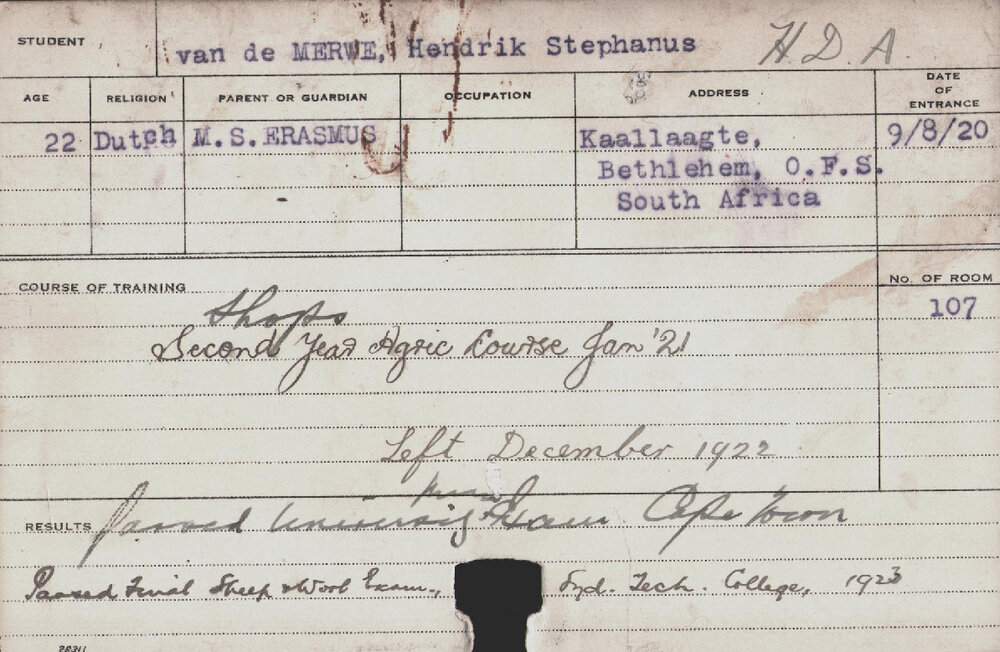 STUDENT van de MERWE, Hendrik Stephanus H.D.A.
AGE RELIGION PARENT OR GUARDIAN OCCUPATION ADDRESS DATE OF ENTRANCE
22 Dutch M.S. ERASMUS Kaallaagte, 9/8/20
Bethlehem, O.F.S.
South Africa
COURSE OF TRAINING No. OF ROOM
Shops 107
Second Year Agric Course Jan '21
Left December 1922
RESULTS Passed University Exam Cape Town
Passed Final Sheep & Wool Exam., Syd. Tech. College, 1923